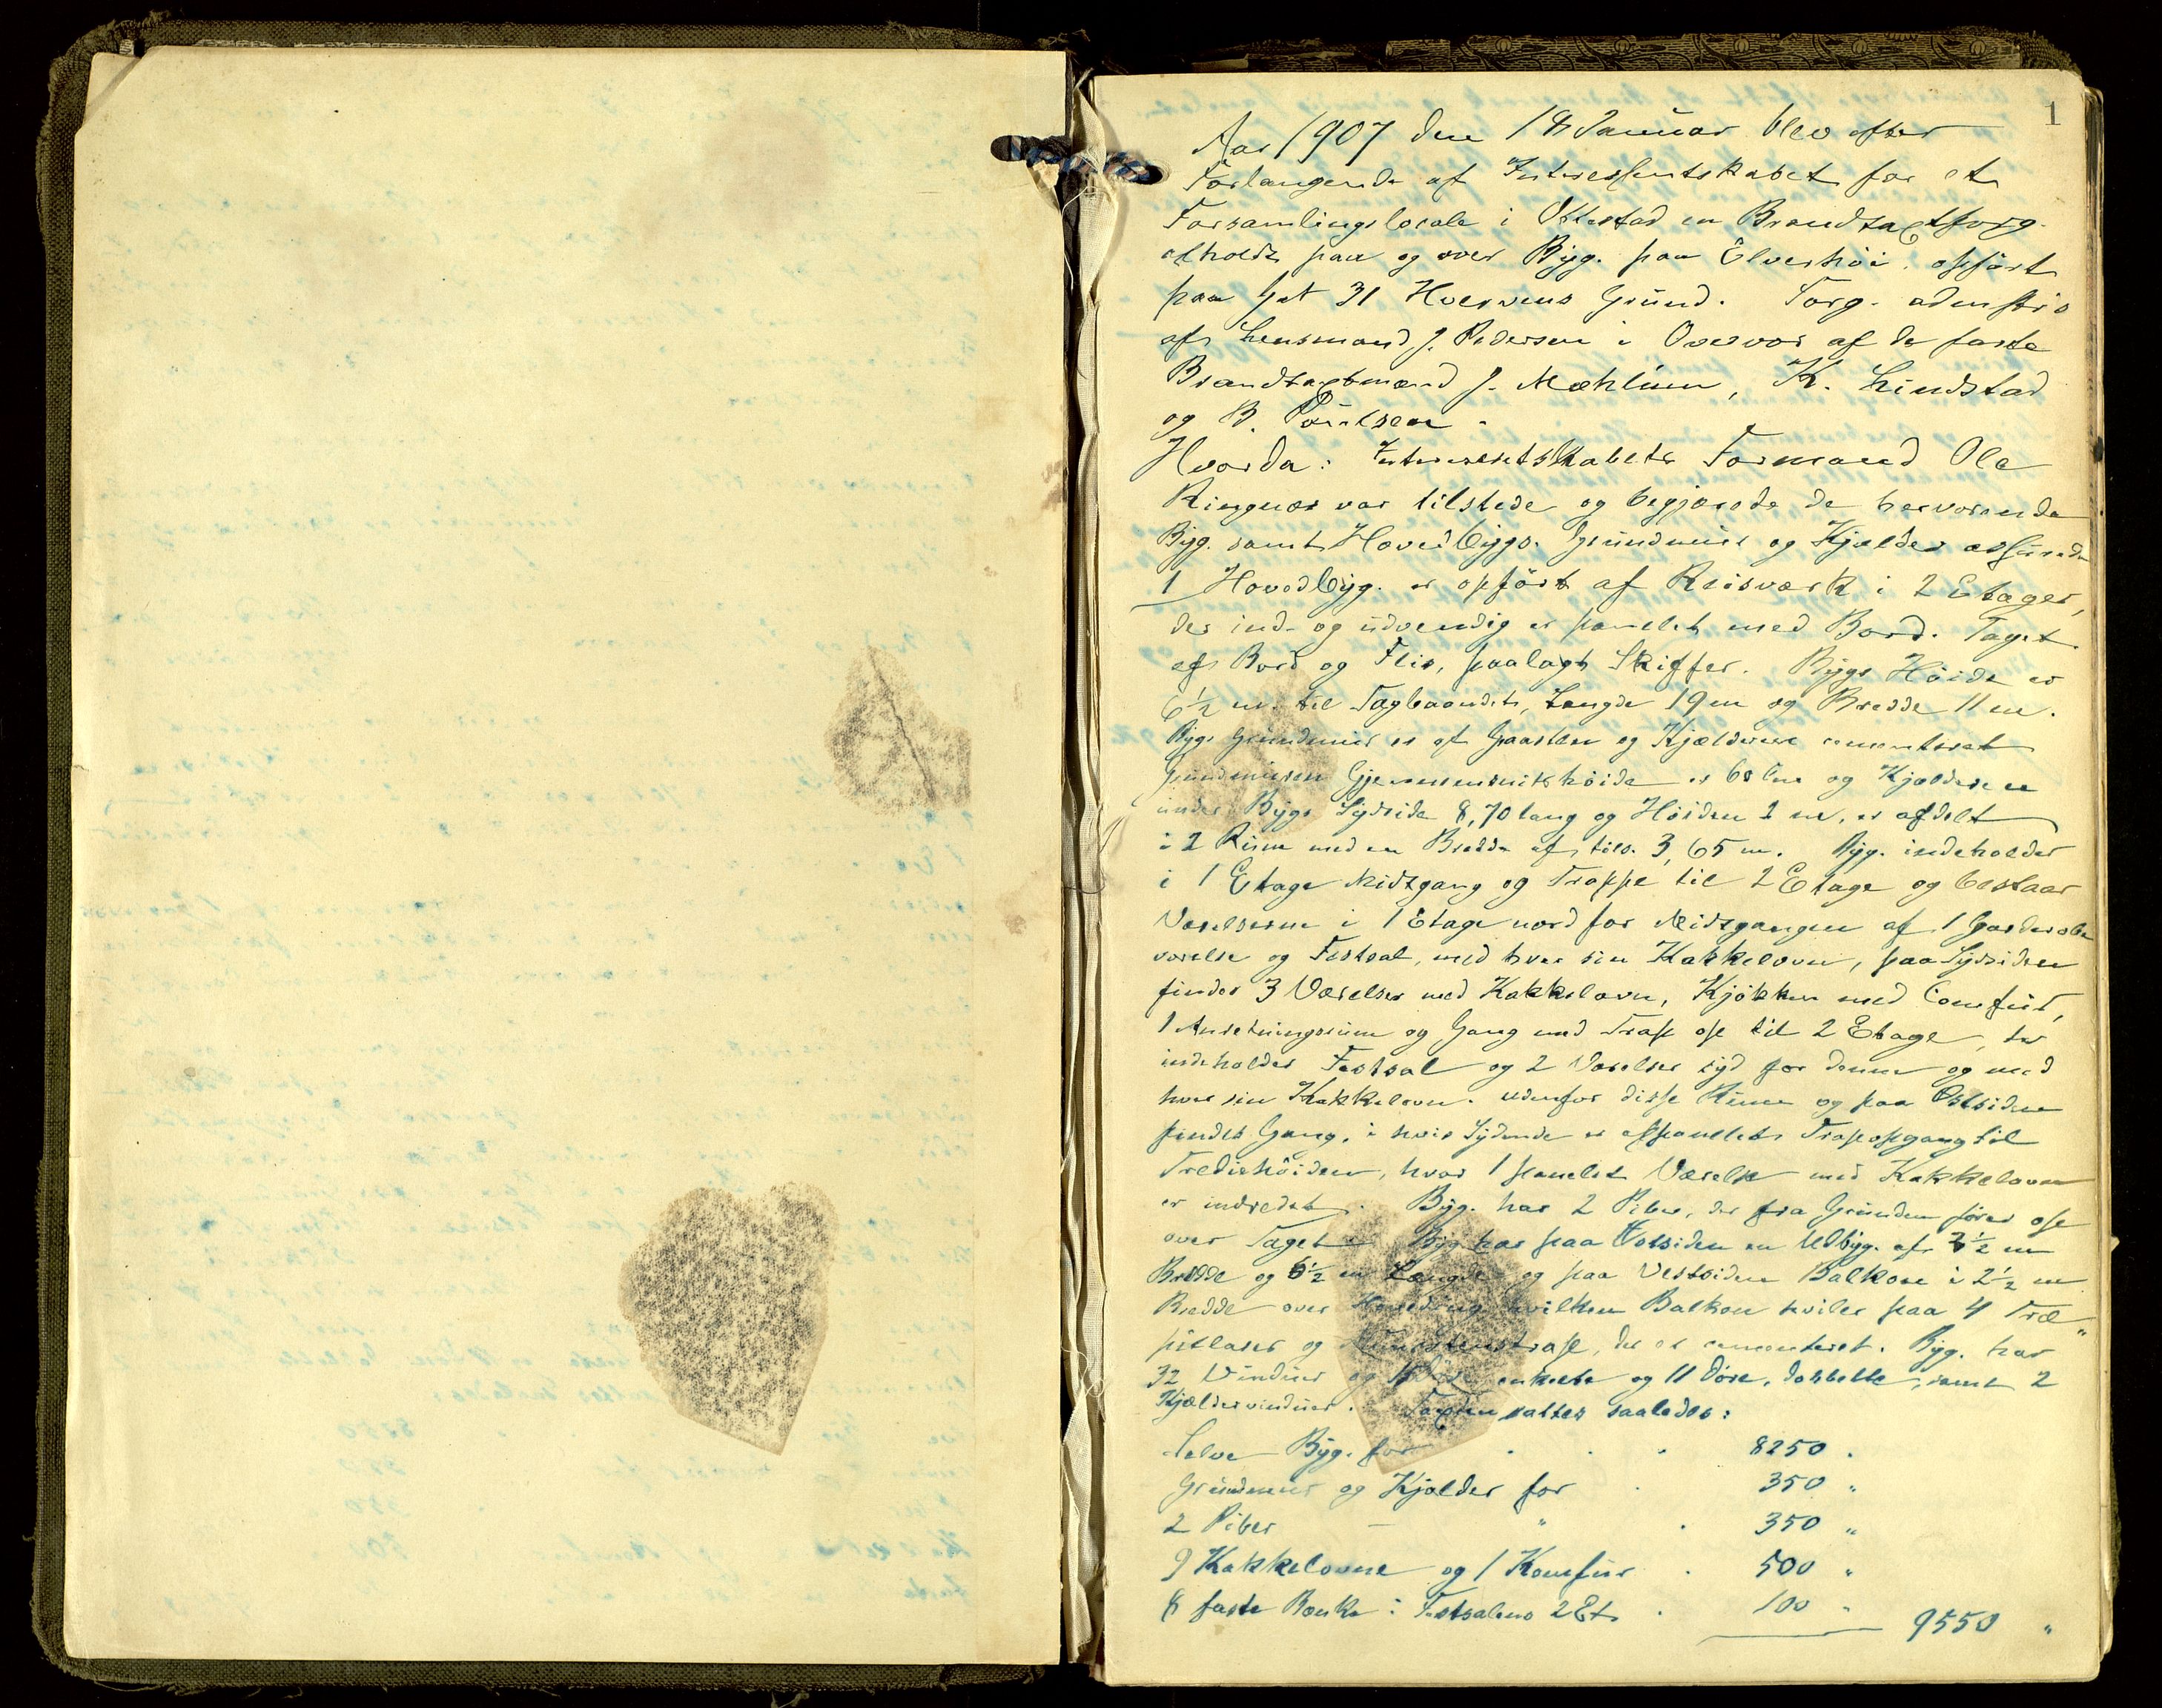 1
Aar 1907 den 18 Januar blev efter
Forlangende af Interessentskabet for et
Forsamlingslocale i Ottestad en Brandtaxtforg.
afholdt paa og over Byg. paa Elverhöi, opfört
paa Gnt 31 Hververs Grund. Forg. adminstr.
af Lensmand J. Pedersen i Overvær af de faste
Brandtaxtmænd J. Mæhlum, K. Lindstad
og B. Poulsen.
Hvorda: Interessetskabets Formand Ole
Ringnæs var tilstede og begjærede de herværende
Byg. samt Hovedbygs. Grundmur og Kjælder assurede
1 Hovedbyg. er opfört af Reisværk i 2 Etager,
der ind- og udvendig er panelet med Bord. Taget
af Bord og Flis, paalagt Skiffer. Bygs Höide er
6½ m. til Tagbaandet, Længde 19 m og Bredde 11 m.
Bygs Grundmur er af Graasten og Kjælderne cementeret
Grundmuren Gjennemsnitshöide er 60 cm og Kjælderen
under Bygs Sydside 8,70 lang og Höiden 2 m, er afdelt
i 2 Rum med en Bredde af tils. 3,65 m. Byg. indeholder
i 1 Etage Midtgang og Trappe til 2 Etage og bestaar
Værelserne i 1 Etage nord for Midtgangen af 1 Garderobe
værelse og Festsal, med hver sin Kakkelovn, paa Sydsiden
findes 3 Værelser med Kakkelovn, Kjökken med Comfur,
1 Anretningsrum og Gang med Trap op til 2 Etage, der
indeholder Festsal og 2 Værelser syd for denne og med
hver sin Kakkelovn. Udenfor disse Rum og paa Östsiden
findes Gang, i hvis Sydende er afpanelet Trapopgang til
Trediehöiden, hvor 1 panelet Værelse med Kakkelovn
er indredet. Byg. har 2 Piber, der fra Grunden förer op
over Taget. Byg. har paa Östsiden en Udbyg. af 2½ m
Bredde og 6½ m Længde og paa Vestsiden Balkon i 2½ m
Bredde over hvilken Balkon hviler paa 4 Træ"
pillarer og Murstenstrap, der er cementeret. Byg. har
32 Vinduer og enkelte og 11 Döre, dobbelte, samt 2
Kjældervinduer. Taxten sattes saaledes:
Selve Byg. for . . . 8250 .
Grundmur og Kjælder for . 350 "
2 Piber — " . 350 "
9 Kakkelovne og 1 Komfur . 500 "
8 faste Bænke i Festsalens 2 Et. . 100 " 9550 "